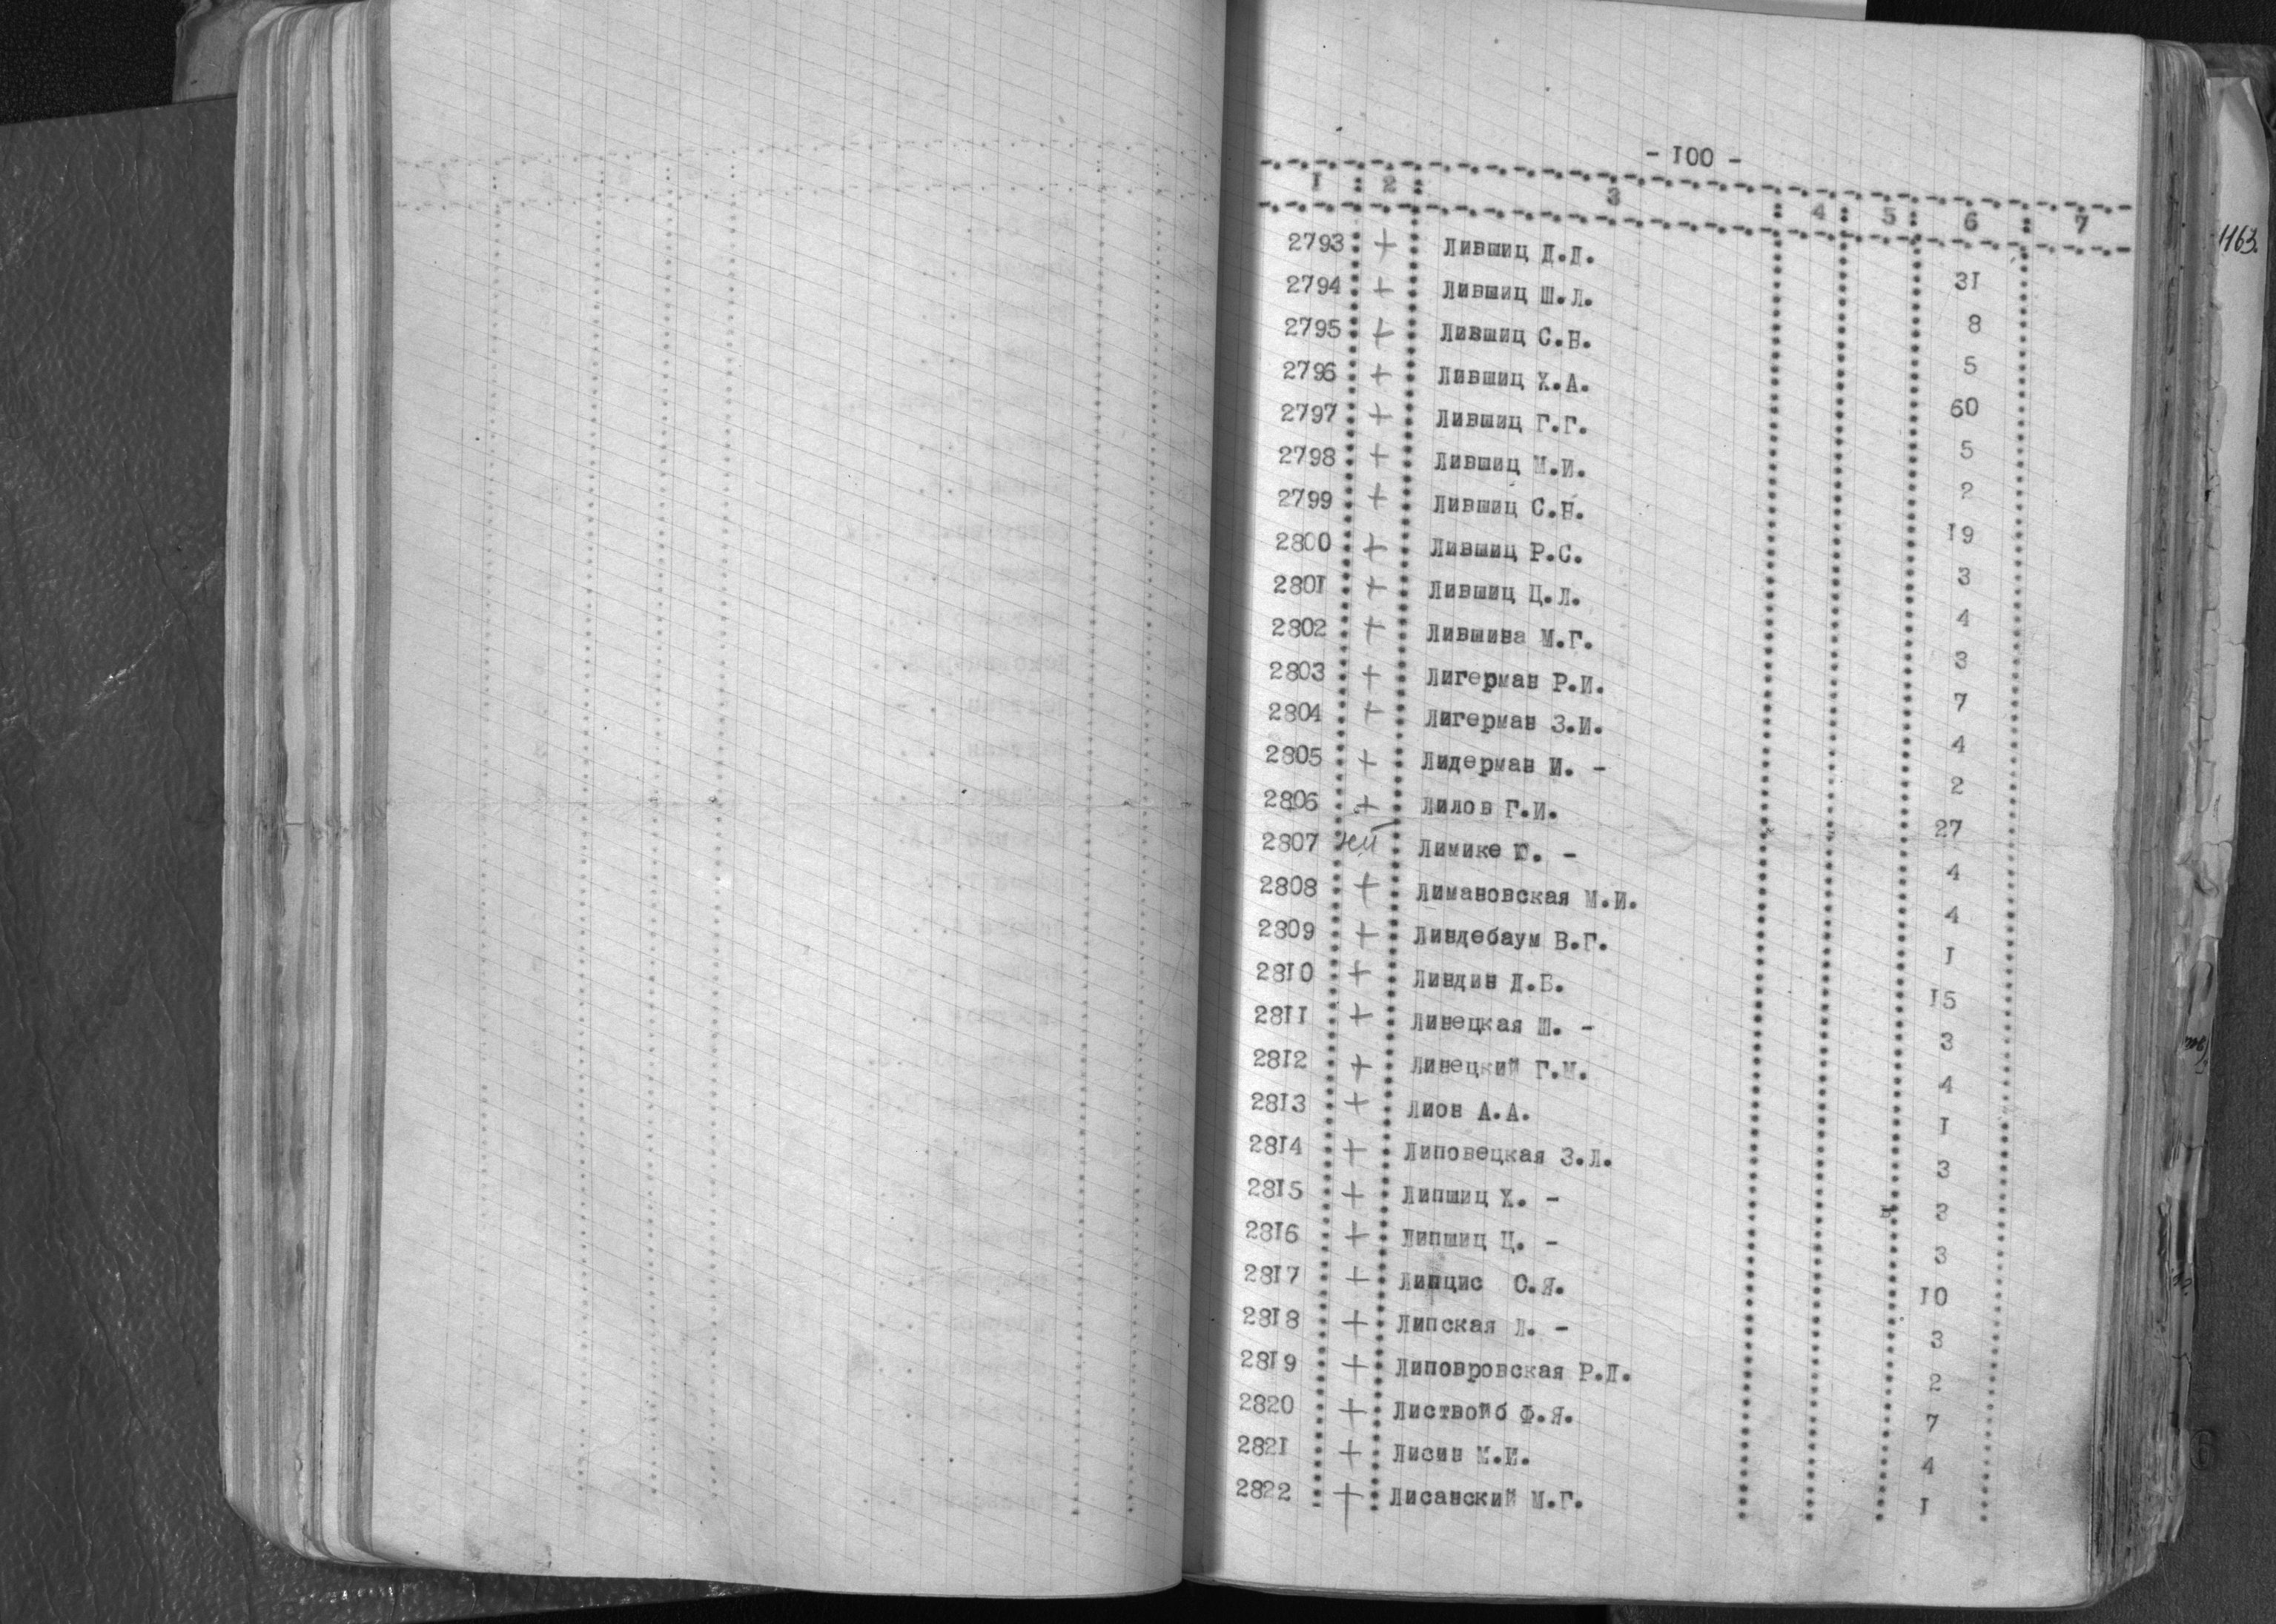 - 100 -
1 : 2 : 3 : 4 : 5 : 6 : 7
1163.
2793 + Лившиц Д.Д. 31
2794 + Лившиц Ш.Л. 8
2795 + Лившиц С.Н. 5
2796 + Лившиц Х.А. 60
2797 + Лившиц Г.Г. 5
2798 + Лившиц М.И. 2
2799 + Лившиц С.Н. 19
2800 + Лившиц Р.С. 3
2801 + Лившиц Ц.Л. 4
2802 + Лившина М.Г. 3
2803 + Лигерман Р.И. 7
2804 + Лигерман З.И. 4
2805 + Лидерман И. - 2
2806 + Лилов Г.И. 27
2807 Лимике Ю. - 4
2808 + Лимановская М.И. 4
2809 + Линдебаум В.Г. 1
2810 + Линдин Д.Б. 15
2811 + Линецкая Ш. - 3
2812 + Линецкий Г.М. 4
2813 + Лион А.А. 1
2814 + Липовецкая З.Л. 3
2815 + Липшиц Х. - 3
2816 + Липшиц Ц. - 3
2817 + Липцис О.Я. 10
2818 + Липская Л. - 3
2819 + Липовровская Р.Д. 2
2820 + Листвойб Ф.Я. 7
2821 + Лисин М.И. 4
2822 + Лисанский М.Г. 1